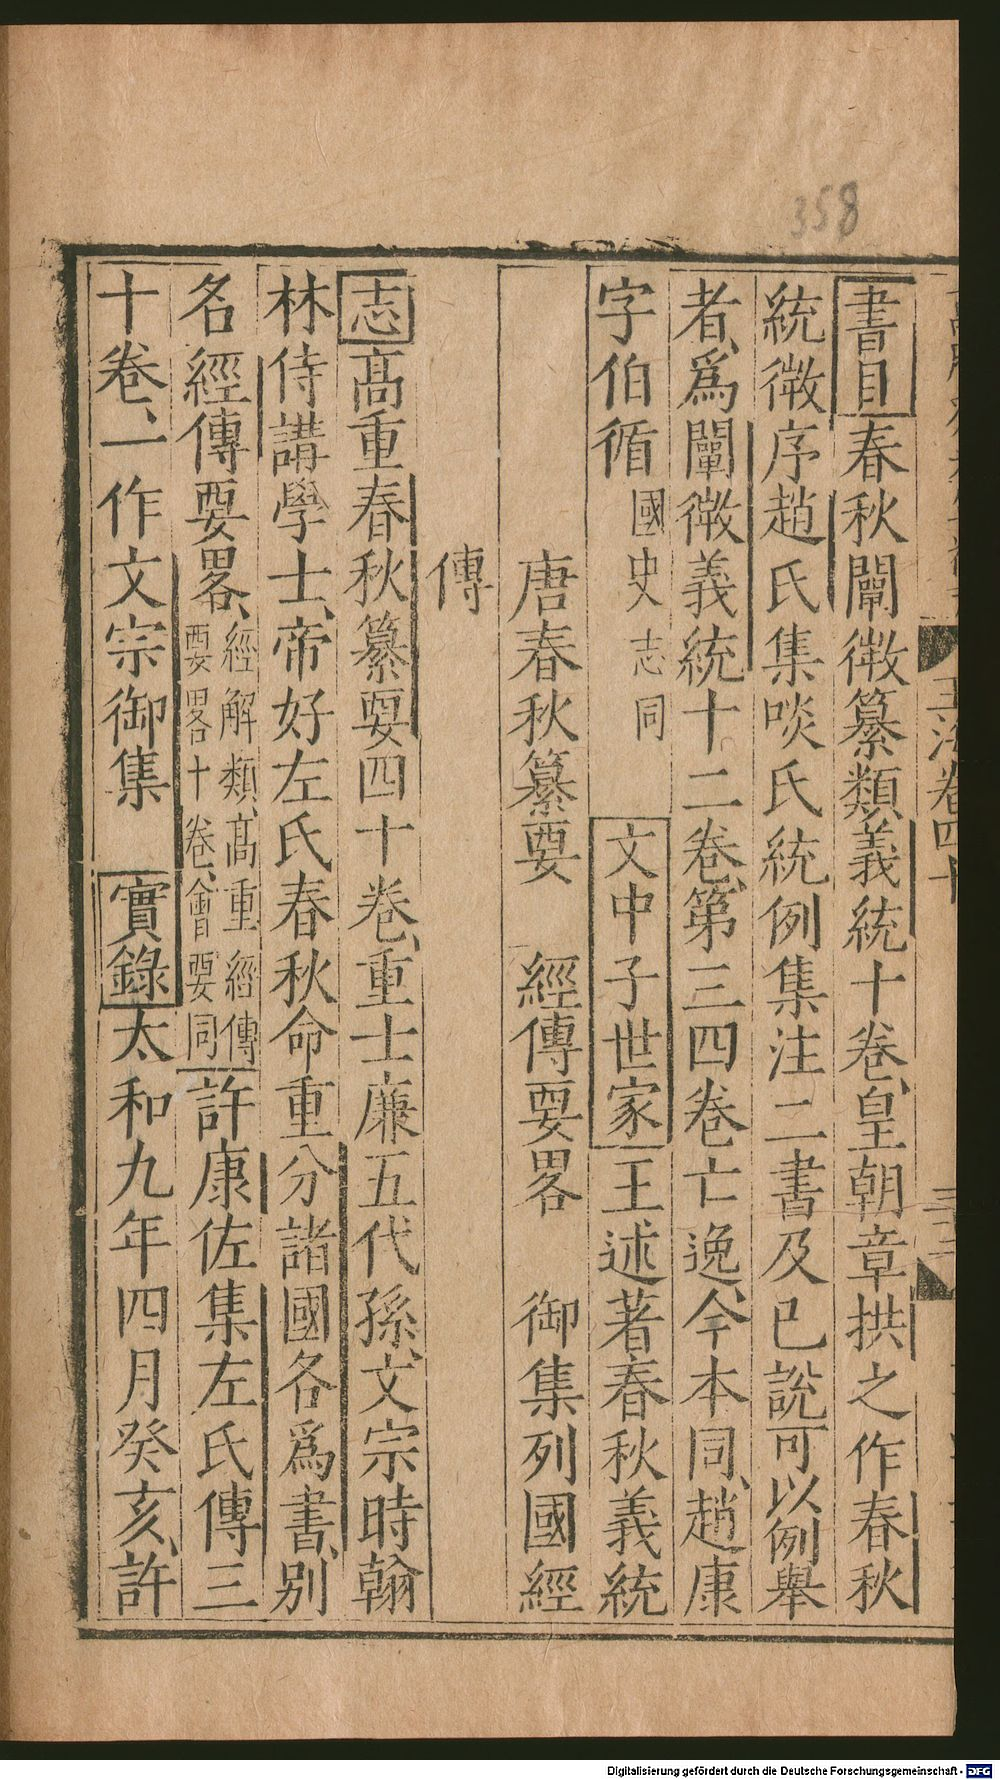 358
書目春秋闡微纂類義統十卷皇朝章拱之作春秋
統微序趙氏集啖氏統例集注二書及已說可以例舉
者爲闡微義統十二卷第三四卷亡逸今本同趙康
字伯循國史志同 文中子世家王述著春秋義統
唐春秋纂要 經傳要畧 御集列國經
傳
志高重春秋纂要四十卷重士廉五代孫文宗時翰
林侍講學士帝好左氏春秋命重分諸國各爲書别
名經傳要畧經解類高重經傳要畧十卷會要同許康佐集左氏傳三
十卷一作文宗御集 實錄太和九年四月癸亥許
Digitalisierung gefördert durch die Deutsche Forschungsgemeinschaft - DFG